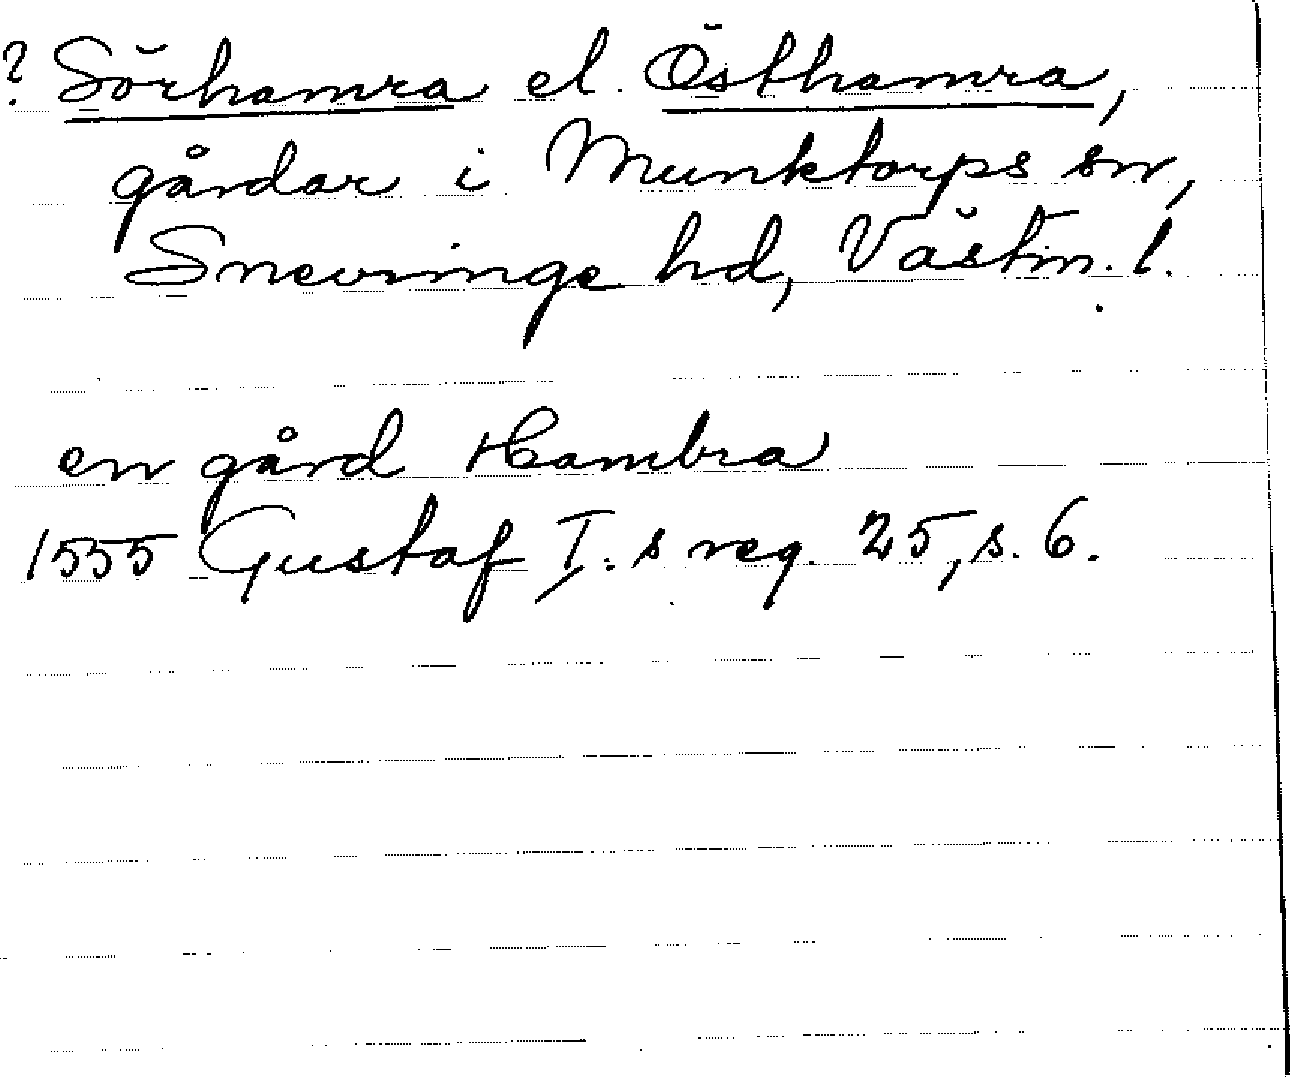 ? Sörhamra el. Östhamra,
gårdar i Munktorps sn,
Snevringe hd, Västm. l.
en gård Hambra
1555 Gustaf I:s reg. 25, s. 6.